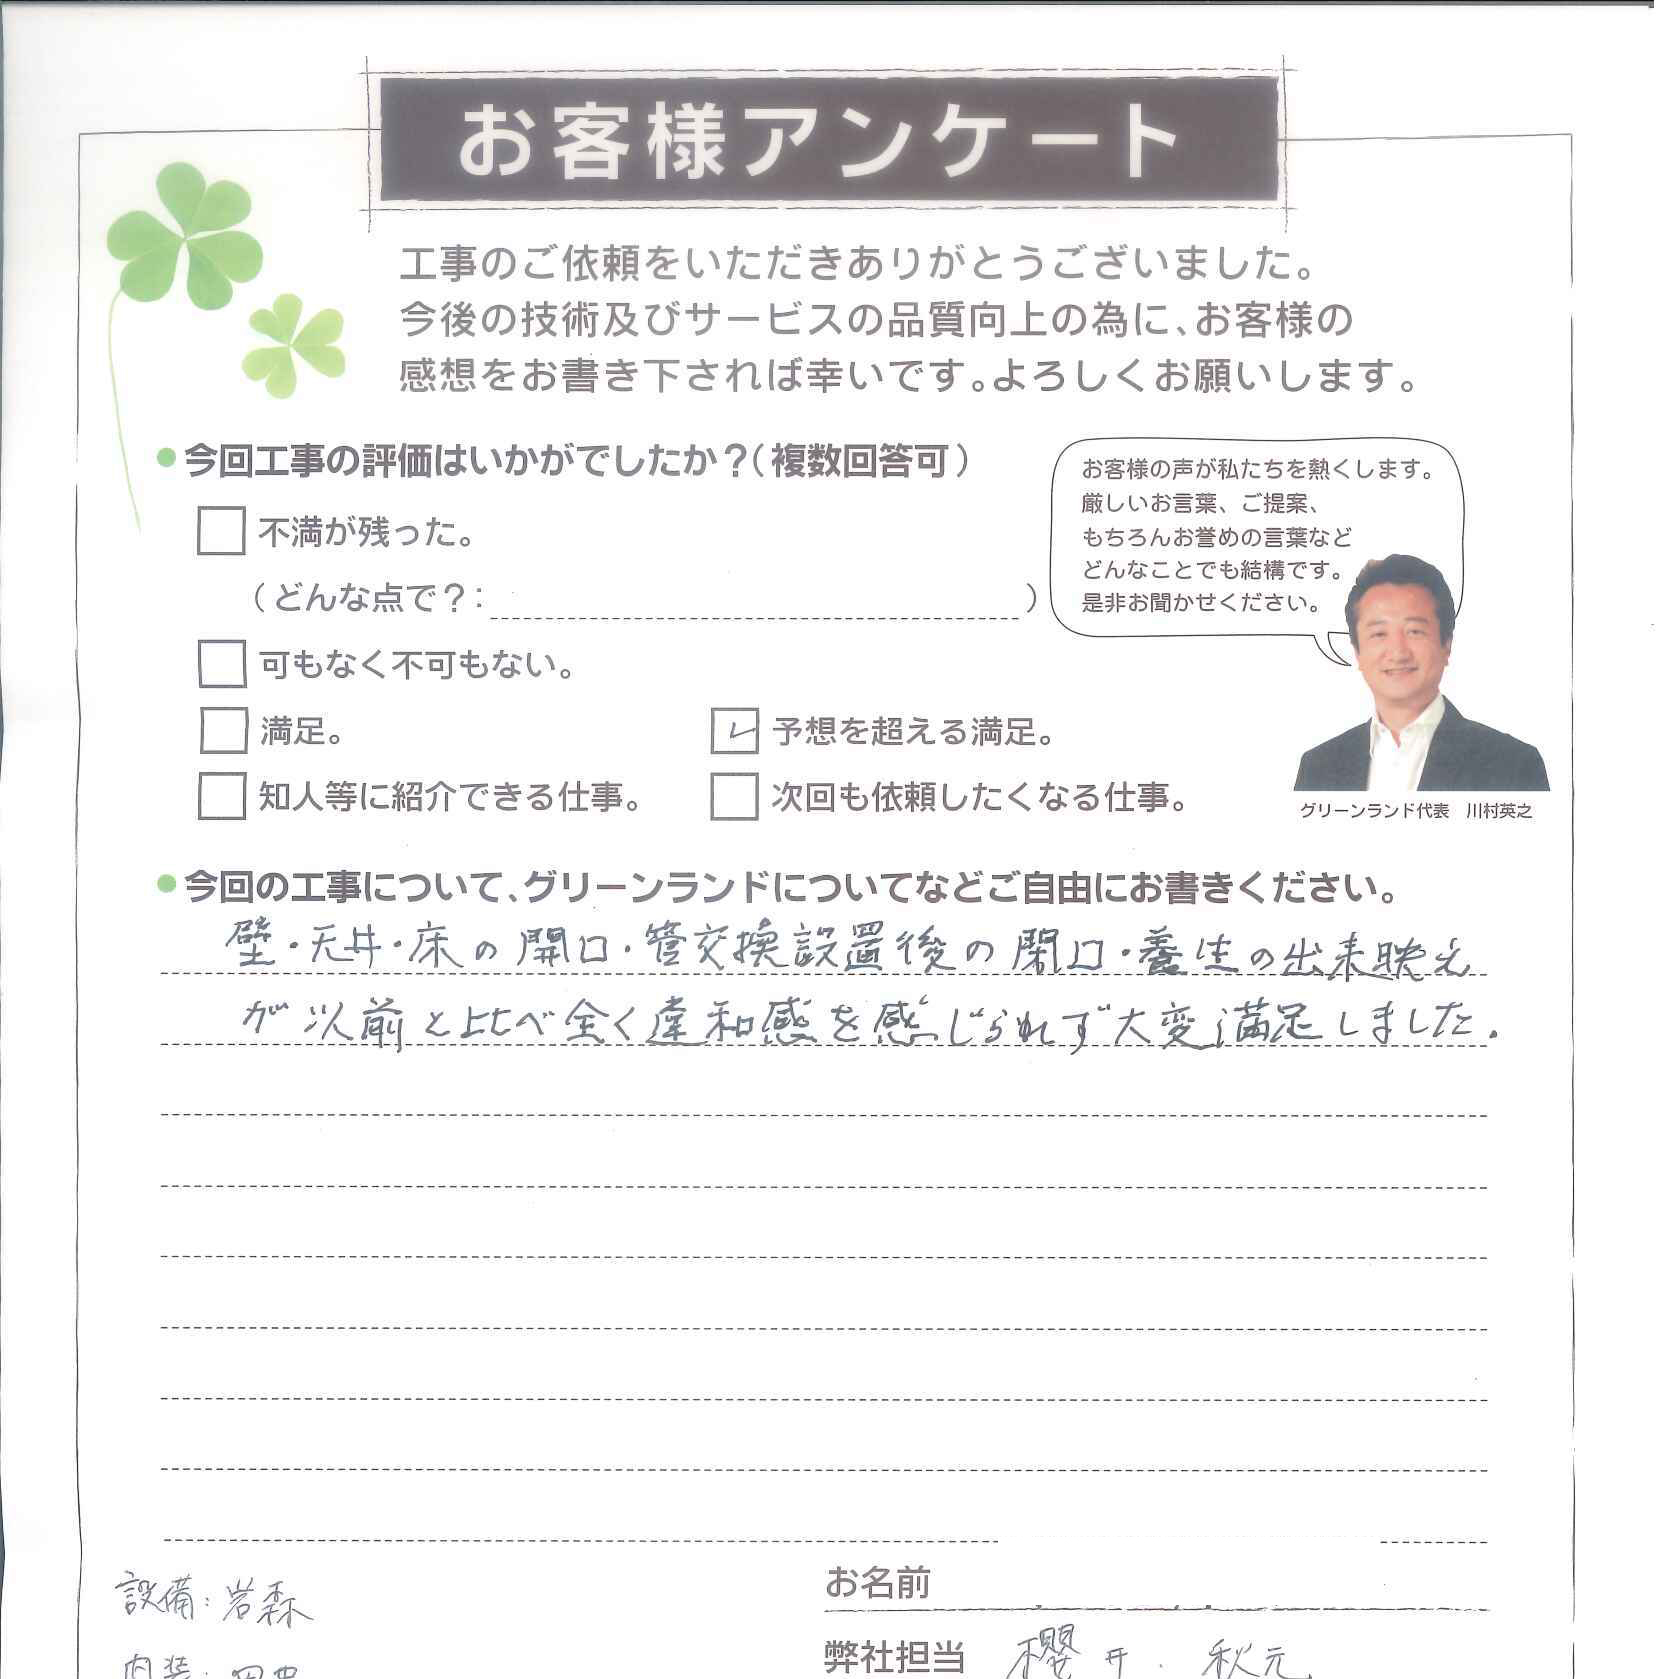 お客様アンケート
工事のご依頼をいただきありがとうございました。
今後の技術及びサービスの品質向上の為に、お客様の
感想をお書き下されば幸いです。よろしくお願いします。
●今回工事の評価はいかがでしたか？（複数回答可）
不満が残った。
（どんな点で？：　　　）
可もなく不可もない。
満足。
予想を超える満足。
知人等に紹介できる仕事。
次回も依頼したくなる仕事。
お客様の声が私たちを熱くします。
厳しいお言葉、ご提案、
もちろんお誉めの言葉など
どんなことでも結構です。
是非お聞かせください。
グリーンランド代表　川村英之
●今回の工事について、グリーンランドについてなどご自由にお書きください。
壁・天井・床の開口・管交換設置後の閉口・養生の出来映え
が以前と比べ全く違和感を感じられず大変満足しました.
設備：岩森
お名前
弊社担当　櫻井．秋元
内装：